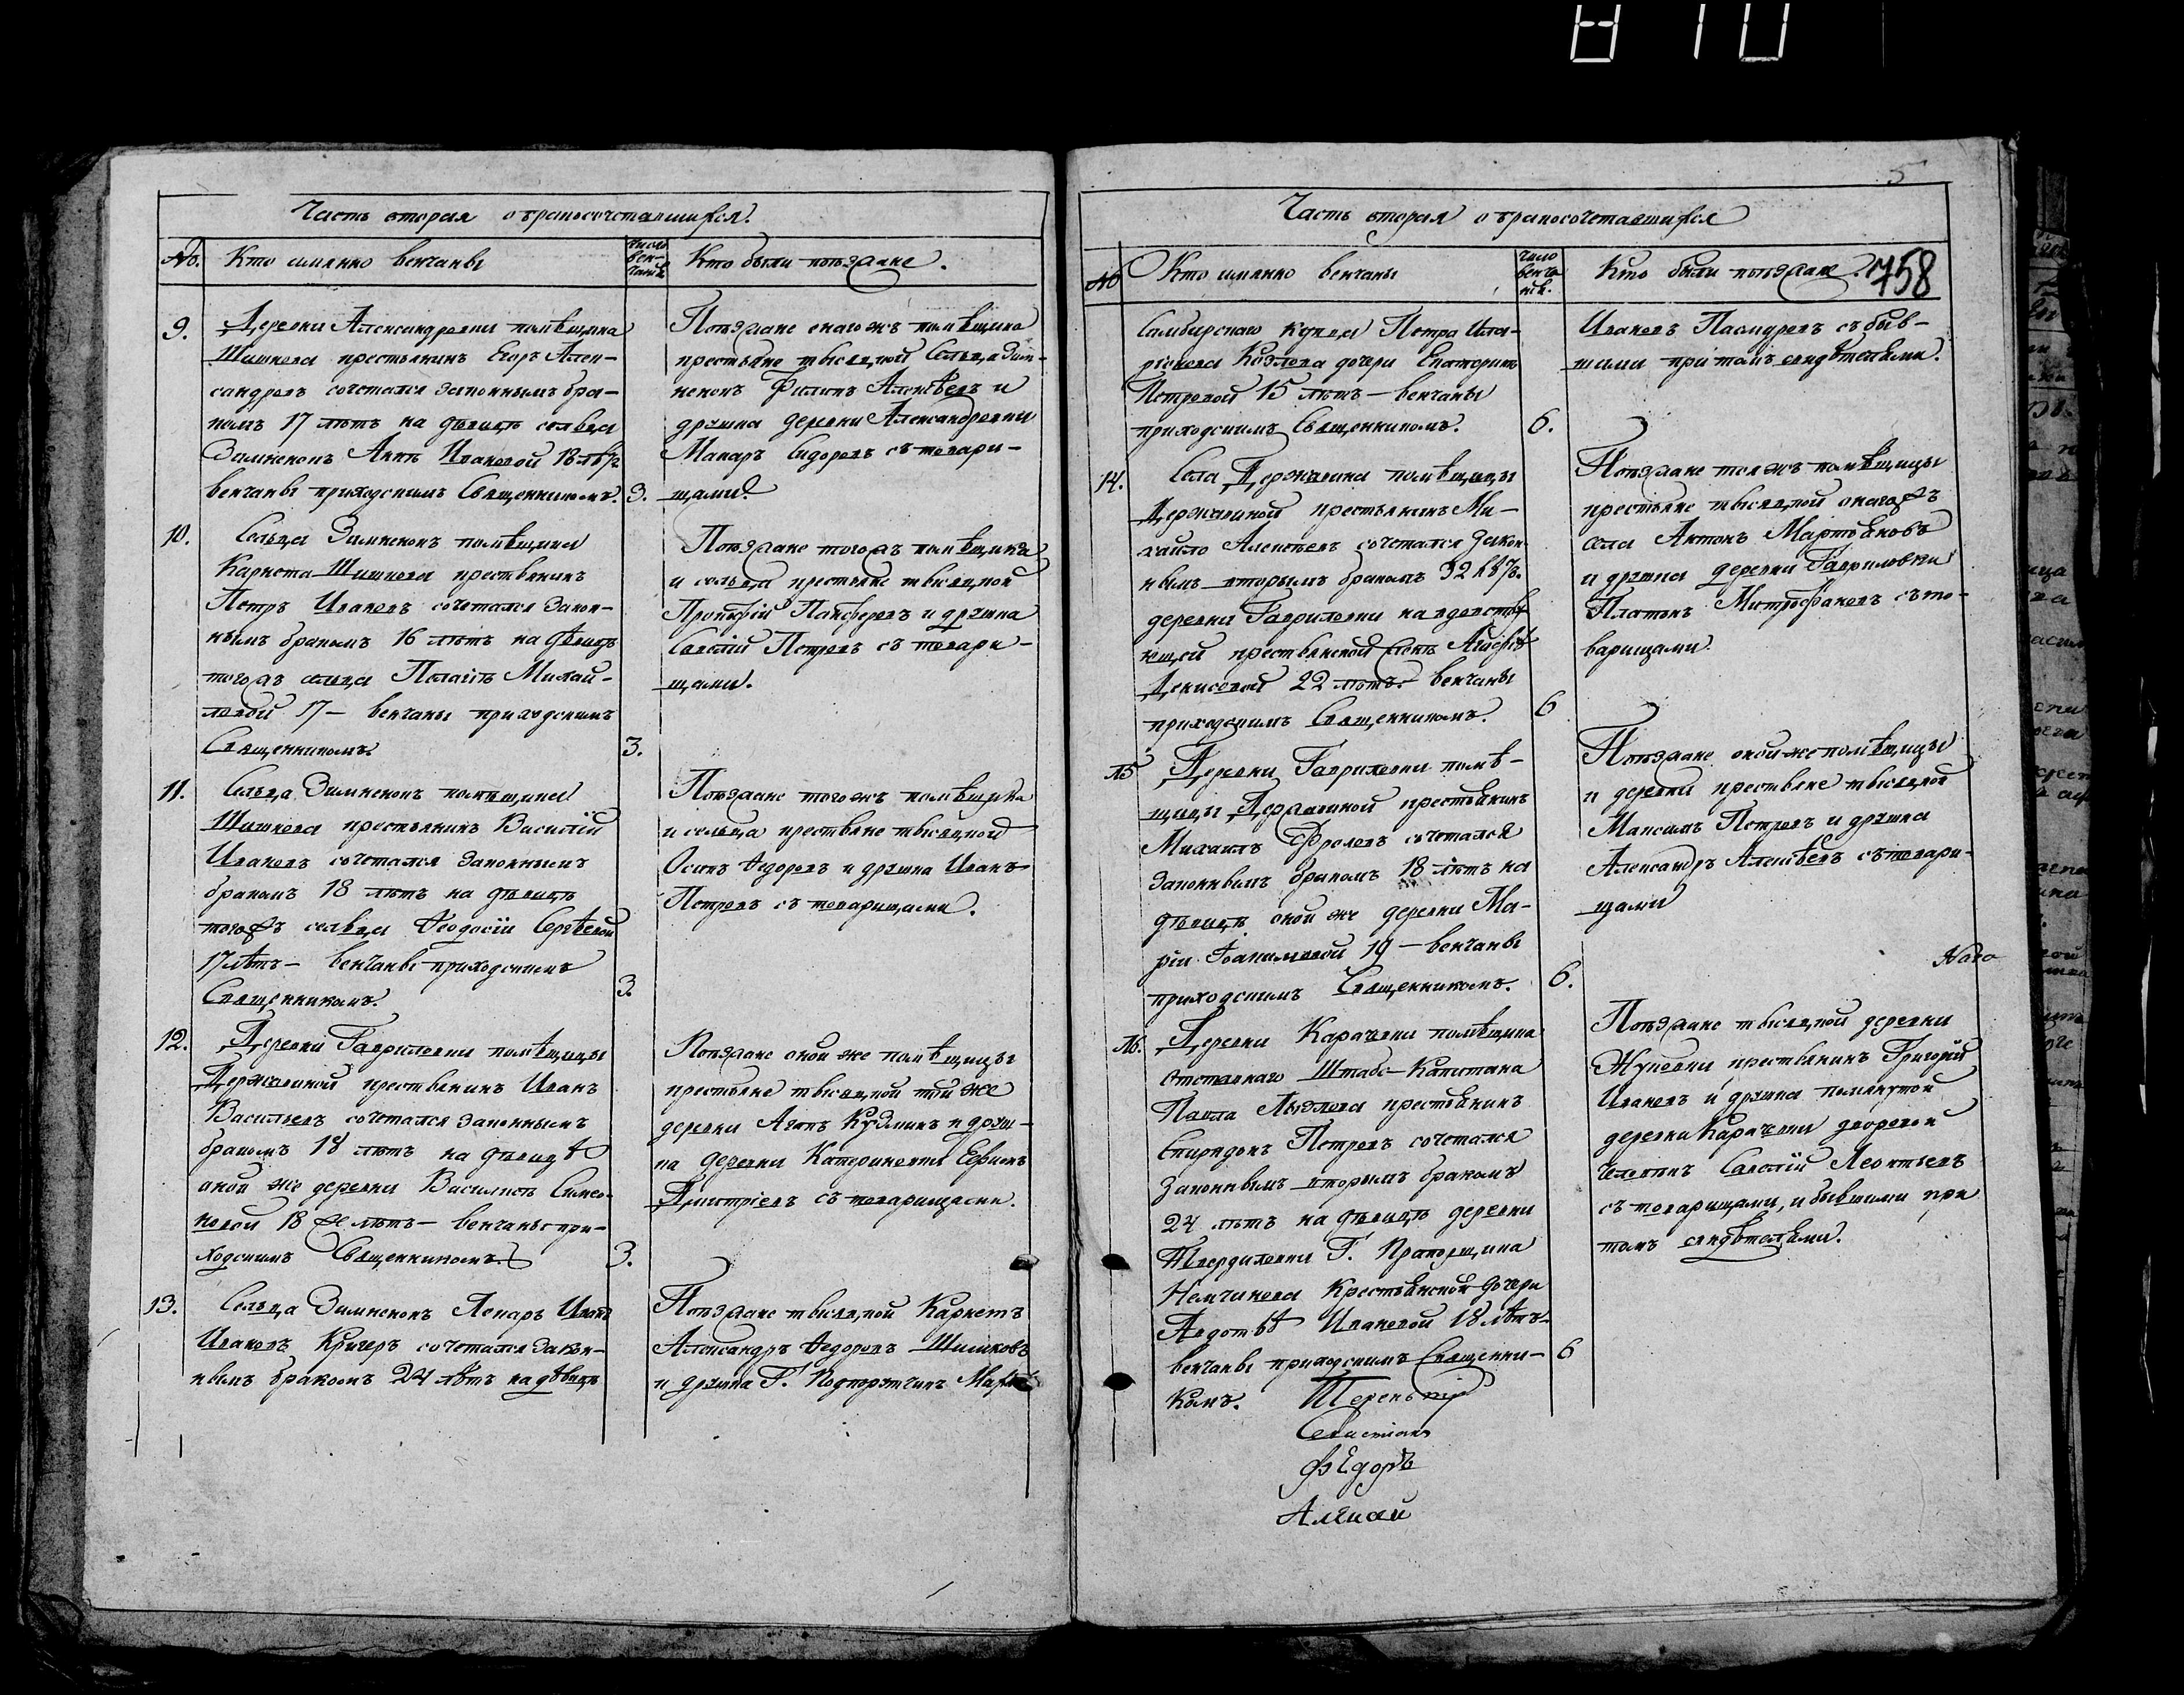 Часть вторая о бракосочетавшихся.
№. Кто имянно венчаны
число вен-чанiя
Кто были поѣзжане.
9. Деревни Александровки помѣщика
Шишкова крестьянинъ Егоръ Алек-
сандровъ сочетался законнымъ бра-
комъ 17 лѣтъ на дѣвицѣ сельца
Зимненокъ Аннѣ Ивановой 18 лѣтъ
венчаны приходскимъ Священникомъ. 3.
Поѣзжане онагожъ помѣщика
крестьяне тысяцкой Сельца Зим-
ненокъ Филипъ Алексѣевъ и
дружка деревни Александровки
Макаръ Сидоровъ съ товари-
щами.
10. Сельца Зимненокъ помѣщика
Карнета Шишкова крестьянинъ
Петръ Ивановъ сочетался закон-
нымъ бракомъ 16 лѣтъ на дѣвицѣ
тогожъ сельца Пелагѣѣ Михай-
ловой 17 — венчаны приходскимъ
Священникомъ. 3.
Поѣзжане тогожъ помѣщика
и сельца крестьяне тысяцкой
Прокофiй Панферовъ и дружка
Савелiй Петровъ съ товари-
щами.
11. Сельца Зимненокъ помѣщика
Шишкова крестьянинъ Василiй
Ивановъ сочетался законнымъ
бракомъ 18 лѣтъ на дѣвицѣ
тогожъ сельца Ѳеодосiи Сергѣевой
17 лѣтъ — венчаны приходскимъ
Священникомъ. 3.
Поѣзжане тогожъ помѣщика
и сельца крестьяне тысяцкой
Осипъ Ѳедоровъ и дружка Иванъ
Петровъ съ товарищами.
12. Деревни Гавриловки помѣщицы
Державиной крестьянинъ Иванъ
Васильевъ сочетался законнымъ
бракомъ 18 лѣтъ на дѣвицѣ
оной же деревни Василисѣ Симео-
новой 18 же лѣтъ — венчаны при-
ходскимъ Священникомъ. 3.
Поѣзжане оной же помѣщицы
крестьяне тысяцкой той же
деревни Агапъ Кузминъ и друж-
ка деревни Катериновки Ефимъ
Дмитрiевъ съ товарищами.
13. Сельца Зимненокъ Лекарь Иванъ
Ивановъ Кригеръ сочетался закон-
нымъ бракомъ 24 лѣтъ на дѣвицѣ
Поѣзжане тысяцкой Карнетъ
Александръ Ѳедоровъ Шишковъ
и дружка Г.
5
Часть вторая о бракосочетавшихся
№ Кто имянно венчаны
число венча-нiя.
Кто были поѣзжане. 758
Самбирскаго купца Петра Ила-
рiонова Козлова дочери Екатеринѣ
Петровой 15 лѣтъ — венчаны
приходскимъ Священникомъ. 6.
Ивановъ съ быв-
шими при томъ свидѣтелями.
14. Села Державина помѣщицы
Державиной крестьянинъ Ми-
хайло Алексѣевъ сочетался закон-
нымъ вторымъ бракомъ 32 лѣтъ.
деревни Гавриловки на вдовству-
ющей крестьянской женѣ
Денисовой 22 лѣтъ. венчаны
приходскимъ Священникомъ. 6
Поѣзжане тояжъ помѣщицы
крестьяне тысяцкой онагожъ
села Антонъ Мартьяновъ
и дружка деревни Гавриловки
Платонъ Митрофановъ съ то-
варищами.
15 Деревни Гавриловки помѣ-
щицы Державиной крестьянинъ
Михаилъ Фроловъ сочетался
законнымъ бракомъ 18 лѣтъ на
дѣвицѣ оной же деревни Ма-
рiи Iоакимовой 19 — венчаны
приходскимъ Священникомъ. 6.
Поѣзжане оной же помѣщицы
и деревни крестьяне тысяцкой
Максимъ Петровъ и дружка
Александръ Алексѣевъ съ товари-
щами
16. Деревни Карачевки помѣщика
отставнаго Штабс-Капитана
Павла крестьянинъ
Спиридонъ Петровъ сочетался
законнымъ вторымъ бракомъ
24 лѣтъ на дѣвицѣ деревни
Твердиловки Г. Прапорщика
Немчинова Крестьянской дочери
Авдотьѣ Ивановой 18 лѣтъ —
венчаны приходскимъ Священни- 6
комъ.
Поѣзжане тысяцкой деревни
крестьянинъ Григорiй
Ивановъ и дружка помянутой
деревни Карачевки дворовой
человекъ Савелiй Леонтьевъ
съ товарищами, и бывшими при
томъ свидѣтелями.
Терентiй
Севастiанъ
Фѣдоръ